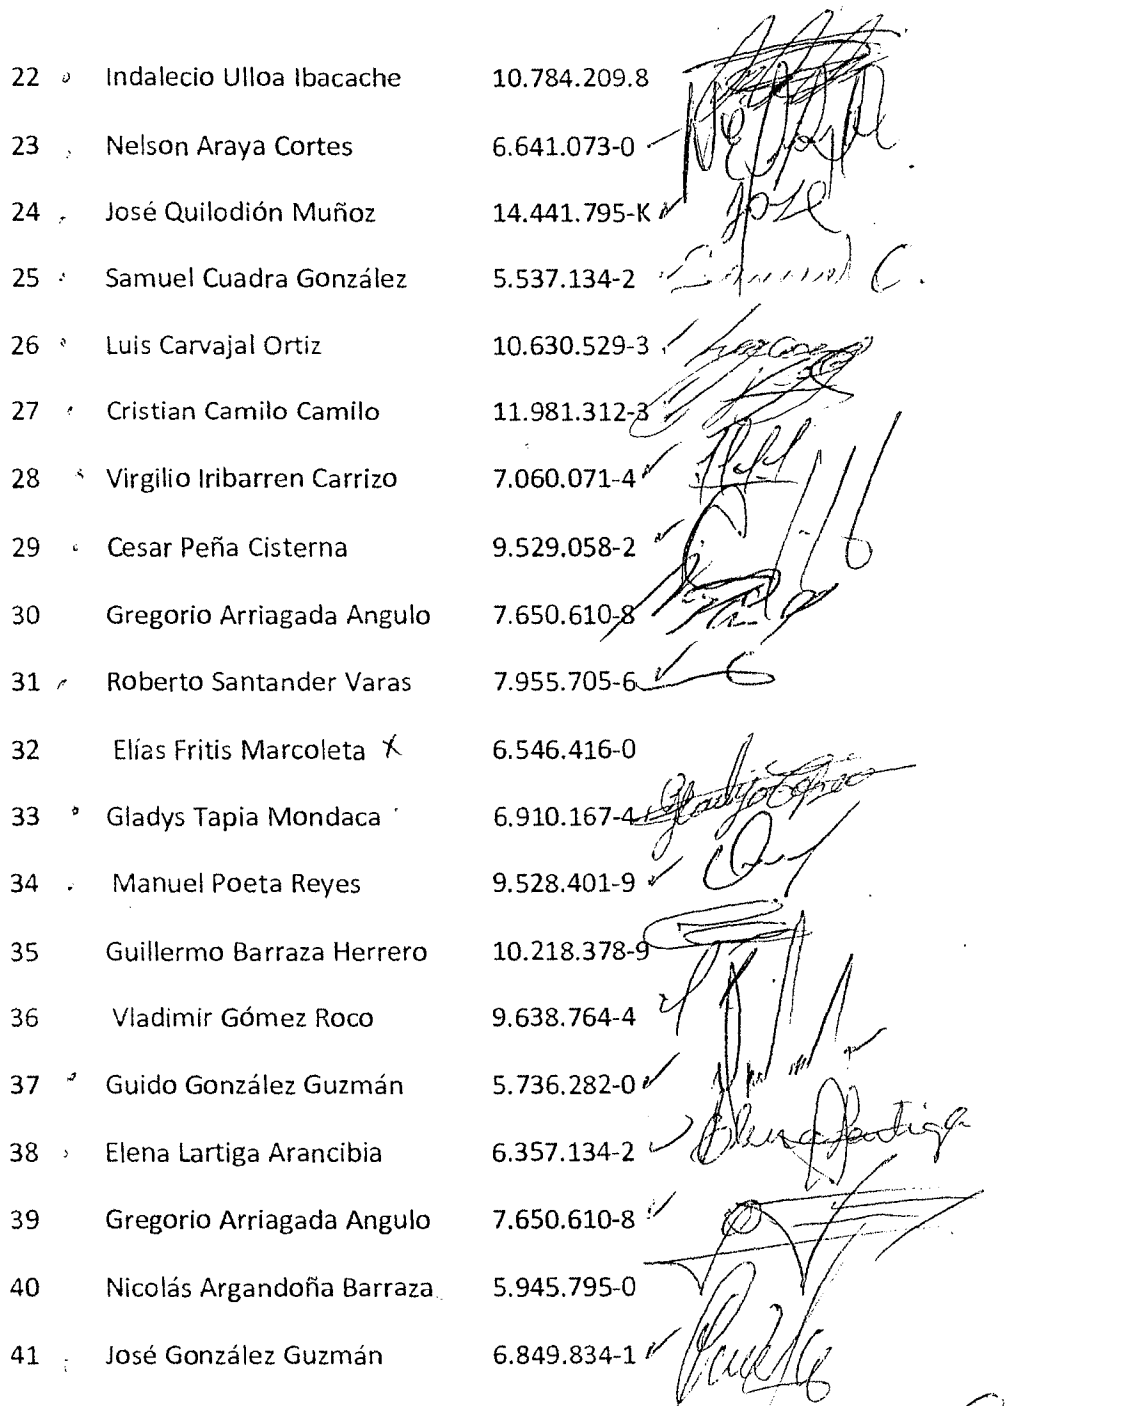 22 Indalecio Ulloa Ibacache 10.784.209.8
23 Nelson Araya Cortes 6.641.073-0
24 José Quilodión Muñoz 14.441.795-K José
25 Samuel Cuadra González 5.537.134-2 Samuel C.
26 Luis Carvajal Ortiz 10.630.529-3
27 Cristian Camilo Camilo 11.981.312-3
28 Virgilio Iribarren Carrizo 7.060.071-4
29 Cesar Peña Cisterna 9.529.058-2
30 Gregorio Arriagada Angulo 7.650.610-8
31 Roberto Santander Varas 7.955.705-6
32 Elías Fritis Marcoleta X 6.546.416-0
33 Gladys Tapia Mondaca 6.910.167-4 Gladys Tapia
34 Manuel Poeta Reyes 9.528.401-9
35 Guillermo Barraza Herrero 10.218.378-9
36 Vladimir Gómez Roco 9.638.764-4
37 Guido González Guzmán 5.736.282-0
38 Elena Lartiga Arancibia 6.357.134-2 Elena Lartiga
39 Gregorio Arriagada Angulo 7.650.610-8
40 Nicolás Argandoña Barraza 5.945.795-0
41 José González Guzmán 6.849.834-1